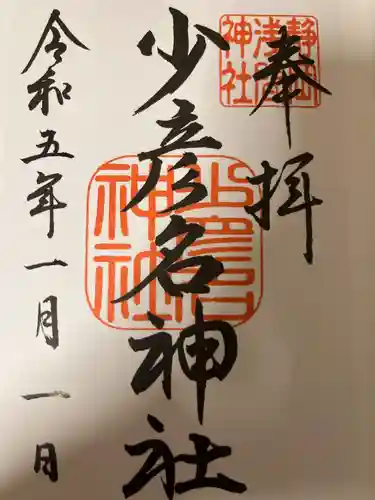 奉拝
静岡浅間神社
少彦名神社
神社
令和五年一月一日